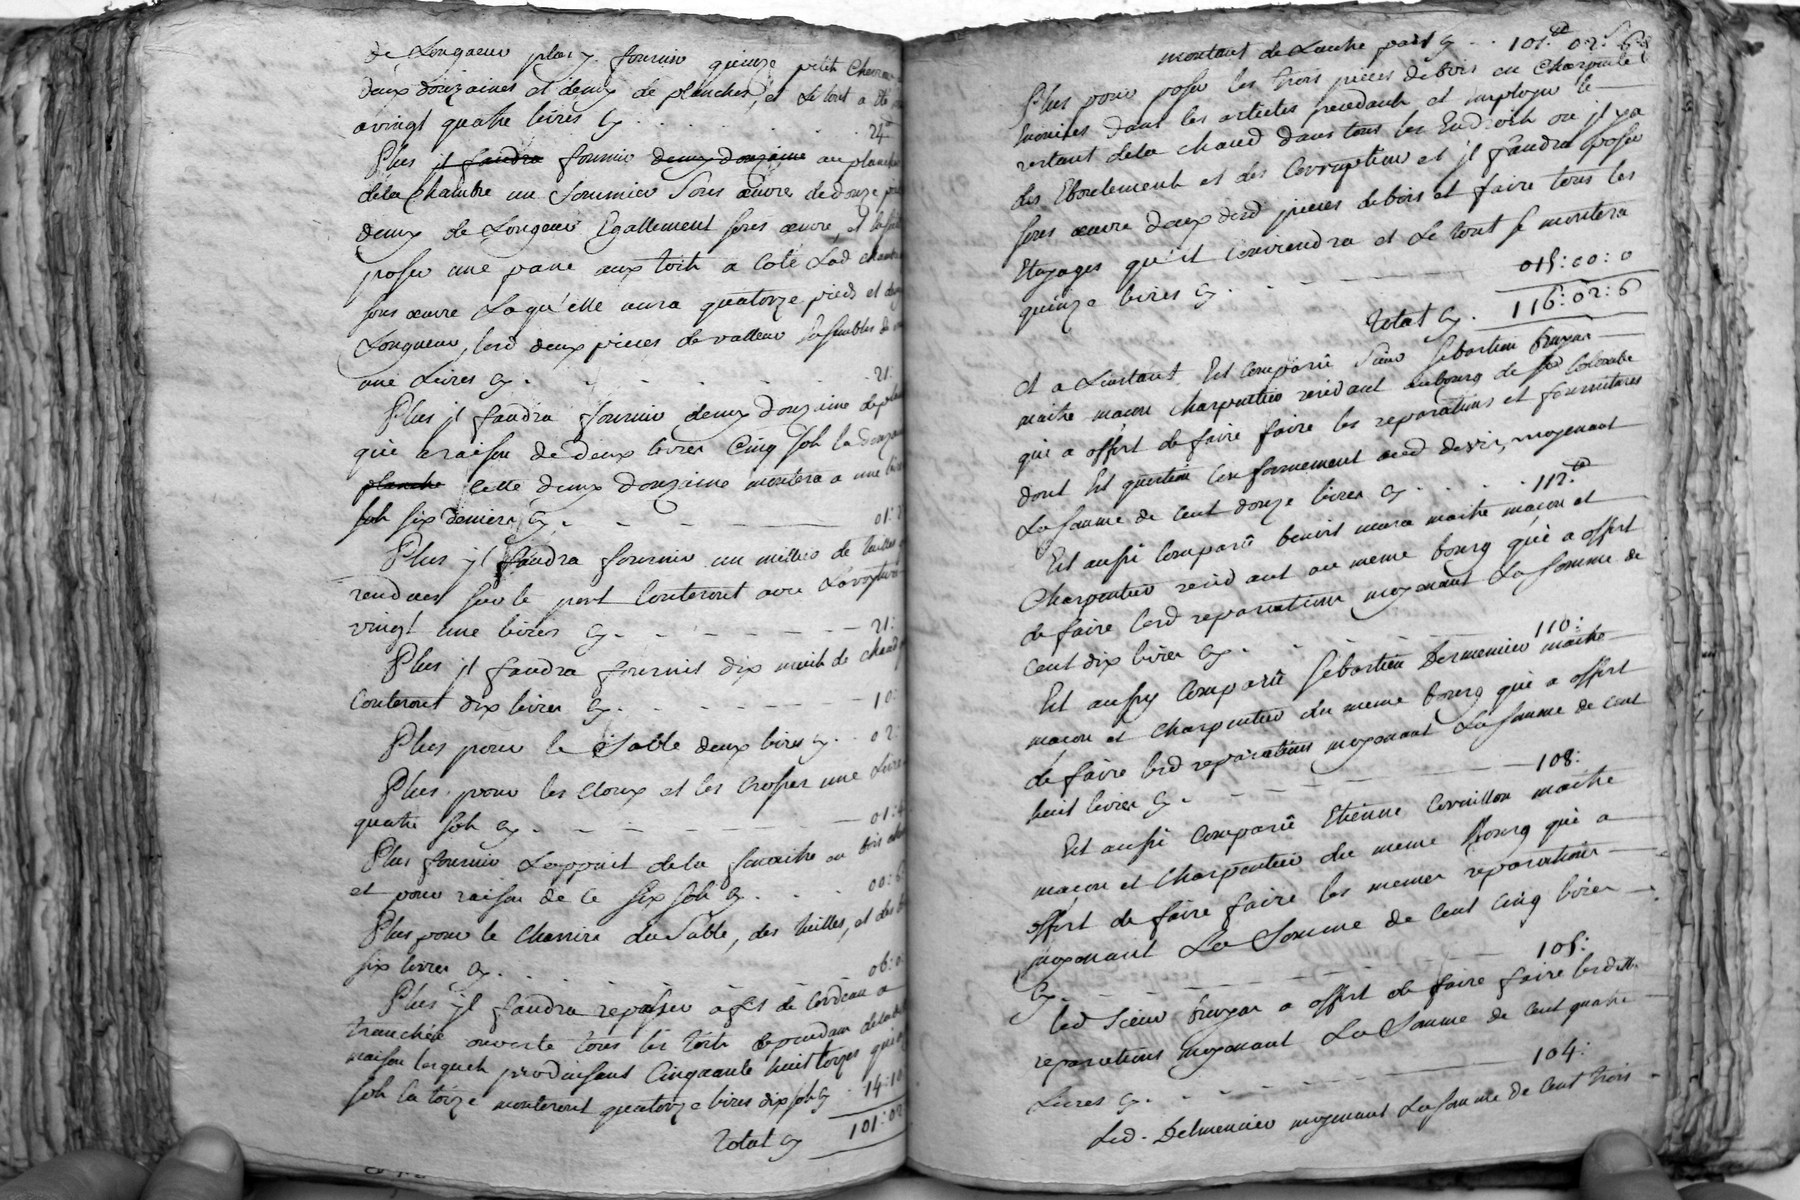 de Longueur plus y fournir quinze petit Chevron
deux douzaines et demy de planches, et le tout a
a vingt quatre livres Cy . . . . . . . 24
Plus jl faudra fournir deux douzaine au plancher
de la Chambre un Sommier Sous œuvre de douze
deux de Longueur Egallement sous œuvre, et
poser une pane aux toits a Coté Lad chambre
sous œuvre Laqu'elle aura quatorze pieds et demy
Longueur, lesd deux pieces de valleur Ensembles de
une Livres Cy . . . . . . . 21:
Plus jl faudra fournir deux douzaine de
qui a raison de deux livres Cinq sols la douzaine
planche Cette deux douzaine montera a une
sols six deniers Cy . . . 01:
Plus jl faudra fournir un millier de tuilles
rendues sur le port Couteront avec La voyture
vingt une livres Cy . . . . . . 21:
Plus jl faudra fournir dix muids de chaud
Couteront dix livres Cy . . . . . . 10:
Plus pour le Sable deux livres Cy . . 02:
Plus pour les Cloux et les Crosses une Livre
quatre sols Cy . . . . . . . 01:
Plus fournir L'appuit de la fenaitre en bois
et pour raison de Ce six sols Cy . . . 00:6
Plus pour le Charrire du Sable, des tuilles, et des
six livres Cy . . . 06:0
Plus jl faudra repasser a fils de Cordeau a
tranchée ouverte tous les toits dependan de la
maison lesquels produisent Cinquante huit toizes
sols la toize monteront quatorze livres dix sols Cy . 14:10
Total Cy 101:02
montant de L'autre part Cy . . 101:02:6
Plus pour poser les trois pieces de bois en Charpente
Enoncées dans les articles precedants et employer le
restant de la chaud dans tous les Endroits ou jl y a
des Eboulements et des Corruption et jl faudra poser
sous œuvre deux desd pieces de bois et faire tous les
Etayages qu'il conviendra et Le tout se montera
quinze livres Cy . . . 015:00:0
Total Cy . 116:02:6
Et a L'instant Est Comparû Sieur Sebastien Bruyar
maitre maçon Charpentier residant au bourg de Ste Colombe
qui a offert de faire faire les reparations et fournitures
dont Est question Conformement aud devis, moyenant
La somme de Cent douze livres Cy . . . . 112
Est aussi Comparû benoit mura maitre macon et
Charpentier resid ant au meme bourg qui a offert
de faire lesd reparations moyenant La somme de
Cent dix livres Cy . . . 110:
Est aussy Comparû Sebastien Delmennier maitre
macon et Charpentier du meme bourg qui a offert
de faire lesd reparations moyenant La somme de cent
huit livres Cy . . . 108:
Est aussi Comparû Etienne Corvillon maitre
maçon et Charpentier du meme Bourg qui a
offert de faire faire les memes reparations
moyenant La Somme de Cent Cinq livres
Cy . . . 105:
Led Sieur Bruyar a offert de faire faire lesdittes
reparations moyenant La Somme de Cent quatre
Livres Cy . . . 104:
Led. Delmennier moyenant La somme de Cent trois